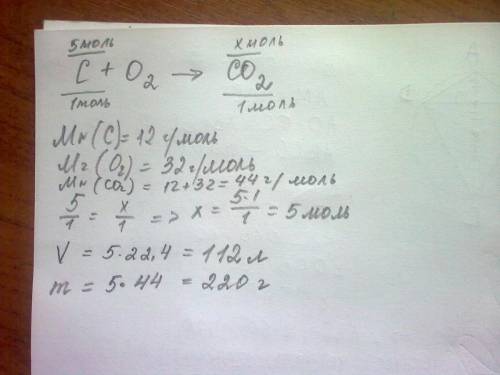 5моль хмоль
C + O₂ → CO₂
1моль 1моль
Mч(C) = 12 г/моль
Mч(O₂) = 32 г/моль
Mч(CO₂) = 12+32 = 44 г/моль
5/1 = x/1 => x = 5·1/1 = 5 моль
V = 5·22,4 = 112 л
m = 5·44 = 220 г